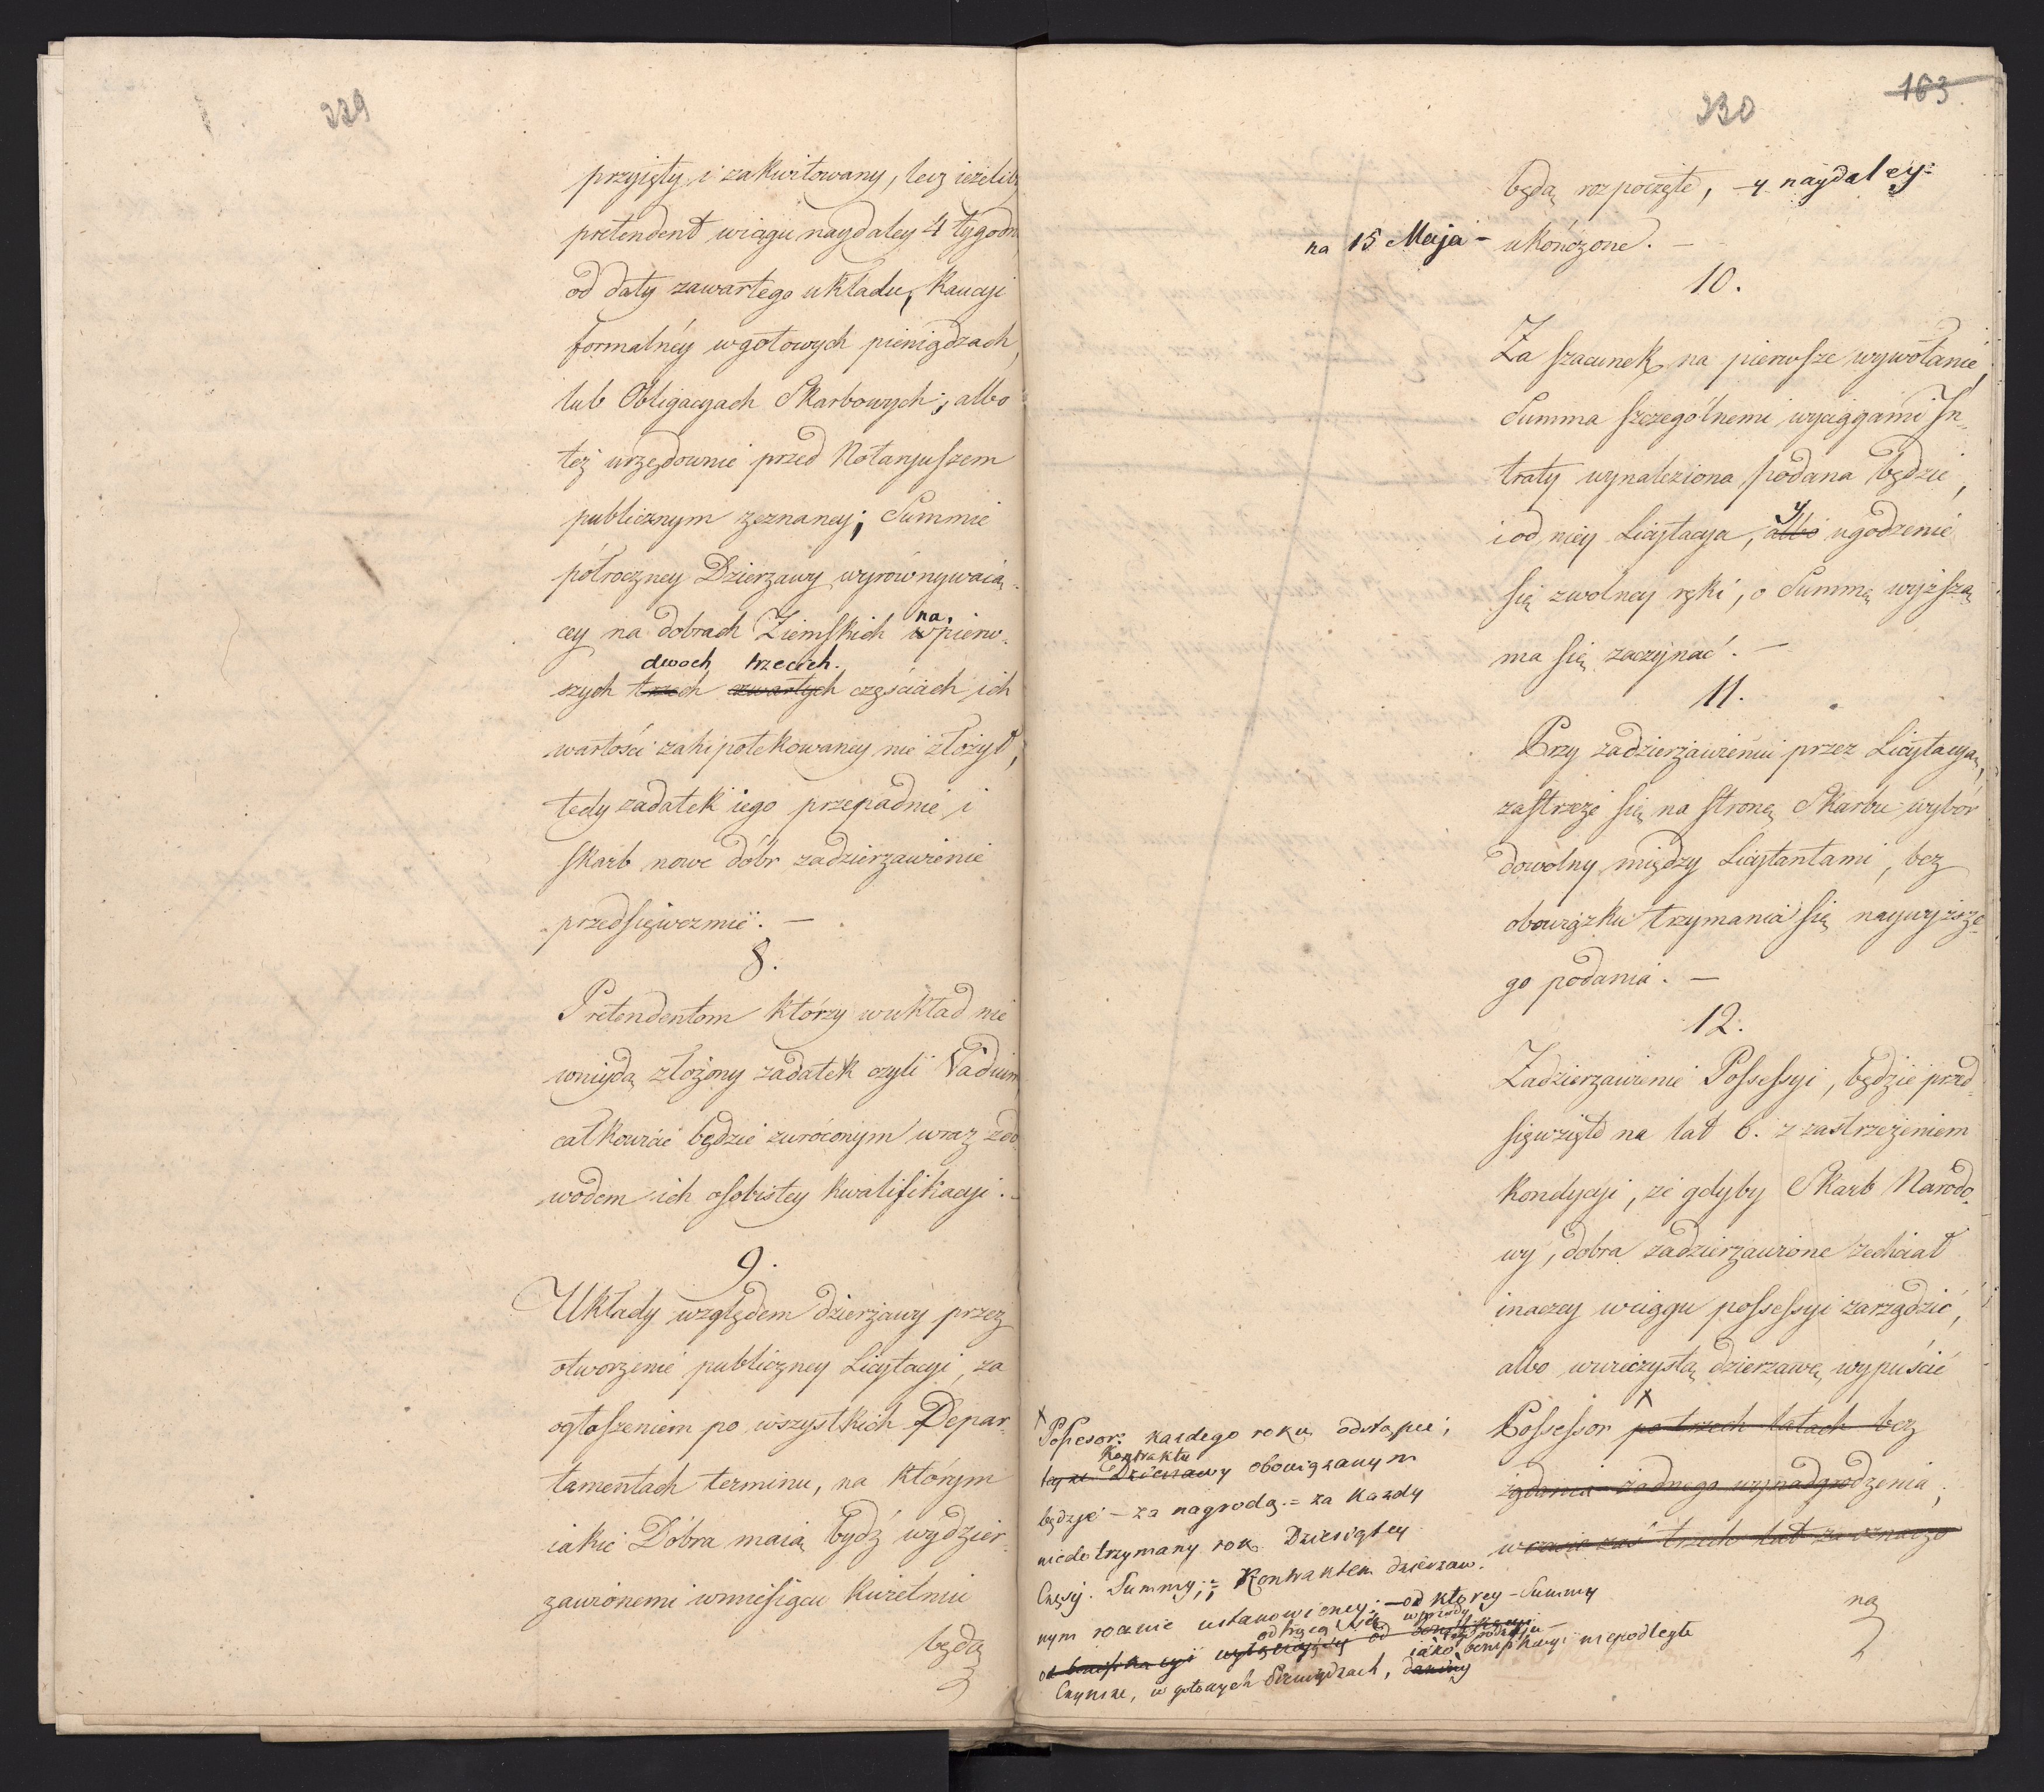 229
przyięty i zakwitowany, lecz ieżeliby
pretendent wciągu naydaley 4 tygodni
od daty zawartego układu, Kaucyi
formalnéy wgotowych pieniądzach,
lub Obligacyach Skarbowych; albo
też urzędownie przed Notaryuszem
publicznym zeznaney; Summie
półroczney Dzierzawy wyrównywaią„
cey na dobrach Ziemskich w na pierw„
dwoch trzecich.
szych trzech czwartych częściach ich
wartości zahipotekowaney nie złożył,
tedy zadatek iego przepadnie i
skarb nowe dóbr zadzierzawienie
przedsięwezmie. —
8.
Pretendentom którzy wukład nie
wniydą złożony zadatek czyli Vadium
całkowicie będzie zwróconym wraz zdo„
wodem ich osobistey kwalifikacyi. –
9.
Układy względem dzierzawy przez
otworzenie publiczney Licytacyi, za
ogłoszeniem po wszystkich Depar„
tamentach terminu, na którym
iakie Dobra maią bydź wydzier„
zawionemi wmiesiącu Kwietniu
będą
163
230
będą rozpoczęte, y naydaley=
na 15 Maja – ukończone. —
10.
Za szacunek na pierwsze wywołanie,
Summa szczególnemi wyciągami In„
traty wynaleziona podana będzie,
i od niey Licytacya, albo y ugodzenie
się zwolney ręki, o Summę wyższą
ma się zaczynać. —
11.
Przy zadzierzawieniu przez Licytacyą,
zastrzeże się na stronę Skarbu wybór
dowolny między Licytantami, bez
obowiązku trzymania się naywyższe„
go podania. —
12.
Zadzierzawienie Possessyi, będzie przed„
sięwzięte na lat 6. z zastrzeżeniem
Kondycyi, że gdyby Skarb Narodo„
wy, dobra zadzierzawione zechciał
inaczey wciągu possessyi zarządzić,
albo wwieczystą dzierzawę wypuścić
X
Possessor po trzech latach bez
żądania żadnego wynadgrodzenia,
wczasie zaś trzech lat za oznaczo
na
X
Possesor: kazdego roku odstąpić;
Kontraktu
Dzierzawy obowiązanym
będzie – za nagrodą = za kazdy
niedotrzymany rok Dziesiątey
Częsci. Summy; = Kontraktem dzierzaw.
nym rocznie ustanowioney; – od ktorey – Summy
odtrącą się wprzody
Czynsze, w gotowych Pieniądzach, daniny iako benifikacyi niepodległe